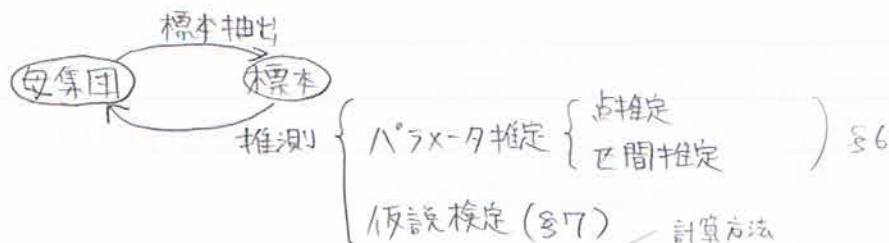 標本抽出
母集団 標本
推測 パラメータ推定 点推定
区間推定 §6
仮説検定 (§7) 計算方法